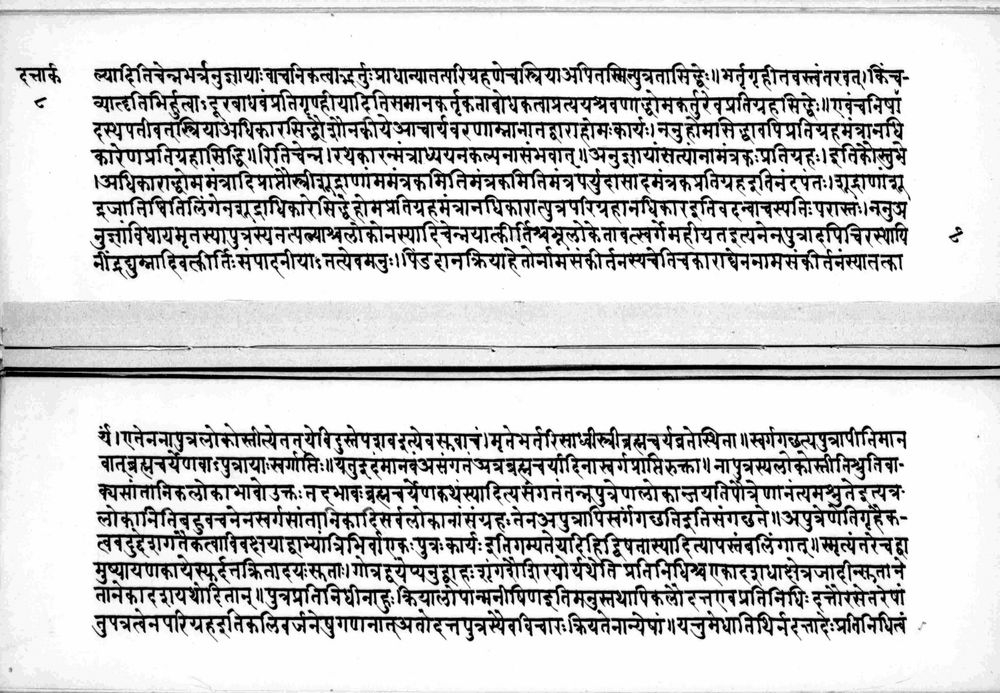 दत्तार्क
८
ल्यादितिचेन्नभर्त्रनुज्ञायाःवाचनिकत्वात्भर्तुःप्राधान्यातत्परिग्रहणेचस्त्रियाअपितस्मिन्पुत्रतासिद्धेः॥भर्तृगृहीतवस्त्वंतरवत्।किंच
व्याहृतिभिर्हुत्वाऽदूरबांधवंप्रतिगृण्हीयादितिसमानकर्तृकताबोधकताप्रत्ययश्रवणाद्धोमकर्तुरेवप्रतिग्रहसिद्धेः॥एवंचनिषा
दस्थपतीवतस्त्रियाअधिकारसिद्धौशौनकीयेआचार्यवरणाम्नानातद्वाराहोमःकार्यः।ननुहोमसिद्धावपिप्रतिग्रहमंत्रानधि
कारेणप्रतिग्रहासिद्धि॥रितिचेन्न।रथकारन्मंत्राध्ययनकल्पनासंभवात्॥अनुज्ञायांसत्यांनामंत्रकःप्रतिग्रहः।इतिकौस्तुभे
।अधिकाराद्धोममंत्रादिप्राप्तौस्त्रीशूद्राणाममंत्रकमितिमंत्रकमितिमंत्रपर्युदासादमंत्रकप्रतिग्रहइतिनंदपंतः।शूद्राणांशू
द्रजातिष्वितिलिंगेनशूद्राधिकारेसिद्धेहोमप्रतिग्रहमंत्रानधिकारात्पुत्रपरिग्रहानधिकारइतिवदन्वाचस्पतिःपरास्तः।ननुअ
नुज्ञांविधायमृतस्यापुत्रस्यतत्पत्न्याश्चलोकोनस्यादिचेन्नयात्कीर्तिश्चभूलोकेतावत्स्वर्गेमहीयतइत्यनेनपुत्रादपिचिरस्थायि
नींद्रद्युम्नादिवत्कीर्तिःसंपादनीयाऽतत्येवमनुः।पिंडदानक्रियाहेतोर्नामसंकीर्तनस्यचेतिचकाराद्येननामसंकीर्तनस्यातत्का
र्यं।एतेननापुत्रलोकोस्तीत्येतत्येविदुस्तेपशवइत्येवस्तुवाचं।मृतेभर्तरिसाध्वीस्त्रीब्रह्मचर्यव्रतेस्थिता॥स्वर्गगछत्यपुत्रापीतिमान
वातब्रह्मचर्येणवाऽपुत्रायाःस्वर्गाप्तिः॥यतुइदंमानवंअसंगतंअत्रब्रह्मचर्यादिनास्वर्गप्राप्तिरुक्ता॥नापुत्रस्यलोकोस्तीतिश्रुतिवा
क्यसांतानिकलोकाभावोउक्तःतदभावःब्रह्मचर्येणकथंस्यादित्यसंगतंतन्नपुत्रेणलोकान्जयतिपौत्रेणानंत्यमश्नुतेइत्यत्र
लोकानितिबहुवचनेनस्वर्गसांतानिकादिसर्वलोकानांसंग्रहःतेनअपुत्रापिस्वर्गंगछतिइतिसंगछते॥अपुत्रेणेतिगृहैक
त्ववदुद्देशगतैकत्वाविवक्षयाद्वाभ्यांत्रिभिर्वाएकःपुत्रःकार्यःइतिगम्यतेयादिहिद्विषतास्यादित्यापस्तंबलिंगात्॥स्मृत्यंतरेचद्व्या
मुष्यायणकायेस्युर्दत्तक्रितादयःसुताः।गोत्रद्वयेप्यनुद्वाहःशुंगशैशिरयोर्यथेति प्रतिनिधिश्चएकादशधाक्षेत्रजादीन्सुताने
तानेकादशयथोदितान्॥पुत्रप्रतिनिधीनाहुःक्रियालोपान्मनीषिणइतिमनुस्तथापिकलौदत्तएवप्रतिनिधिःदत्तौरसेतरेषां
तुपत्रत्वेनपरिग्रहइतिकलिवर्जनेषुगणनात्अतोदत्तपुत्रस्यैवविचारःक्रियतेनान्येषां॥यत्तुमेधातिथिर्नदत्तादेःप्रतिनिधित्वं